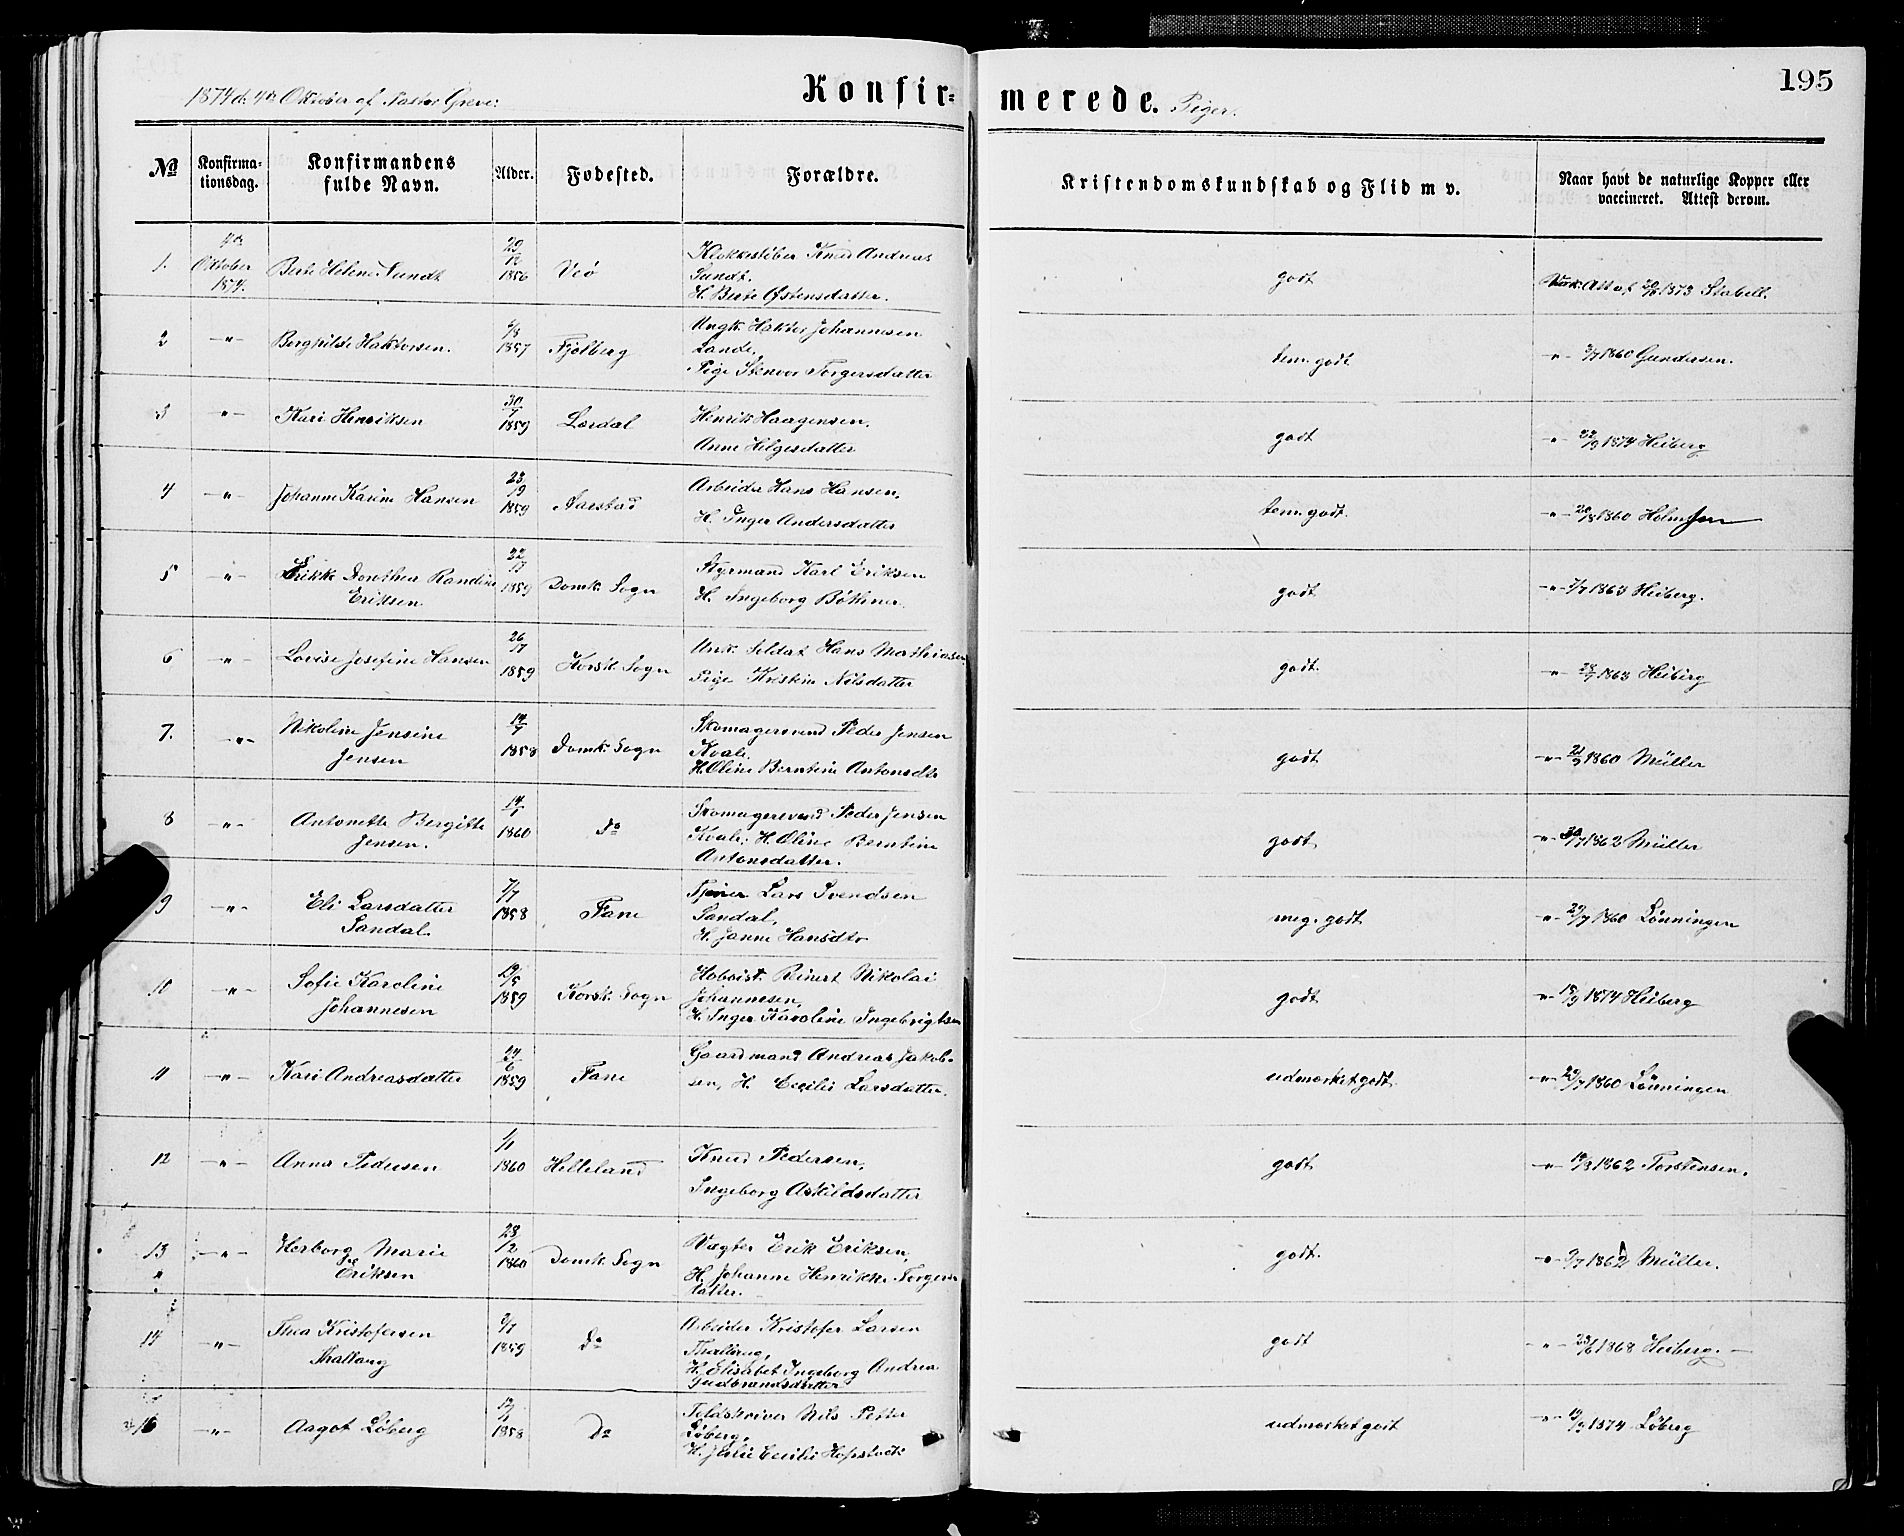 195
1874 d. 4de Oktober af Pastor Greve:
Konfir=
merede. Piger.
No
Konfirma-
tionsdag.
Konfirmandens
fulde Navn.
Alder.
Fødested.
Forældre.
Kristendomskundskab og Flid m v.
Naar havt de naturlige Kopper eller
vaccineret. Attest derom.
1.
4de
Oktober
1874.
Berte Helene Sundt
29/12
1856
Veø
Klokkestøber Knud Andreas
Sundt,
H. Berte Østensdatter.
godt
Vak. Att af 1873 Stabell.
2
-"-
Borghilde Haktorsen.
1857
Fjelberg
Ungk. Haktor Johannesen
Lande,
Pige Stenvor Torgersdatter
tem. godt
-"- 3/7 1860 Gundersen.
3
-"-
Kari Henriksen
30/7
1859
Lærdal
Henrik Haagensen,
Anne Helgesdatter
godt
-"- 22/9 1874 Heiberg
4
-"-
Johanne Karine Hansen
23
1859
Aarstad
Arbeider Hans Hansen,
H. Inger Andersdatter
tem. godt.
-"- 20/8 1860 Holmsen
5
-"-
Rikke Dorthea Randine
Eriksen
22
1859
Domk. Sogn
Styrmand Karl Eriksen
H. Ingeborg Bøthner.
godt
-"- 7/7 1863 Heiberg.
6
-"-
Lovise Josefine Hansen
26/7
1859
Korsk. Sogn
Unk. Soldat Hans Mathiasen
Pige Kristine Nilsdatter
godt.
-"- 28/7 1863 Heiberg
7.
-"-
Nikoline Jensine
Jensen
14/7
1858
Domk. Sogn
Skomagersvend Peder Jensen
Kvale,
H. Oline Berntine Antonsdtr
godt
-"- 1860 Müller
8
-"-
Antonette Bergitte
Jensen.
14/1
1860
Do
Skomagersvend Peder Jensen
Kvale, H. Oline Berntine
Antonsdatter.
godt
-"- 1862 Müller
9
-"-
Eli Larsdatter
Sandal.
7/7
1858
Fane
Tjener Lars Svendsen
Sandal,
H. Janne Hansdtr
meg. godt
-"- 29/7 1860 Lønningen
10
-"-
Sofie Karoline
Johannesen
19/5
1859
Korsk. Sogn
Hoboist Reinert Nikolai
Johannesen,
H. Inger Karoline Ingebrigtsen
godt
-"- 18/9 1874 Heiberg
11
-"-
Kari Andreasdatter
24/6
1859
Fane
Gaardmand Andreas Jakob-
sen, H. Cecilie Larsdatter.
udmerket godt.
-"- 29/7 1860 Lønningen
12
-"-
Anna Pedersen
1/1
1860
Helleland
Knud Pedersen,
Ingeborg Askildsdatter
godt
-"- 19/8 1862 Torstensen.
13
-"-
Herborg Marie
Eriksen
23/2
1860
Domk. Sogn
Vægter Erik Eriksen,
H. Johanne Henrikke Torgers-
datter.
godt.
-"- 9/7 1862 Müller.
14
-"-
Thea Kristofersen
Thallaug
1859
Do
Arbeider Kristofer Larsen
Thallaug,
H. Elisabet Ingeborg Andrea
Gudbrandsdatter
godt
-"- 23/6 1868 Heiberg. —
-"-
Aagot Løberg
1858
Do
Toldskriver Nils Petter
Løberg,
H. Julie Cecilie Hopstock
udmerket godt
-"- 1874 Løberg